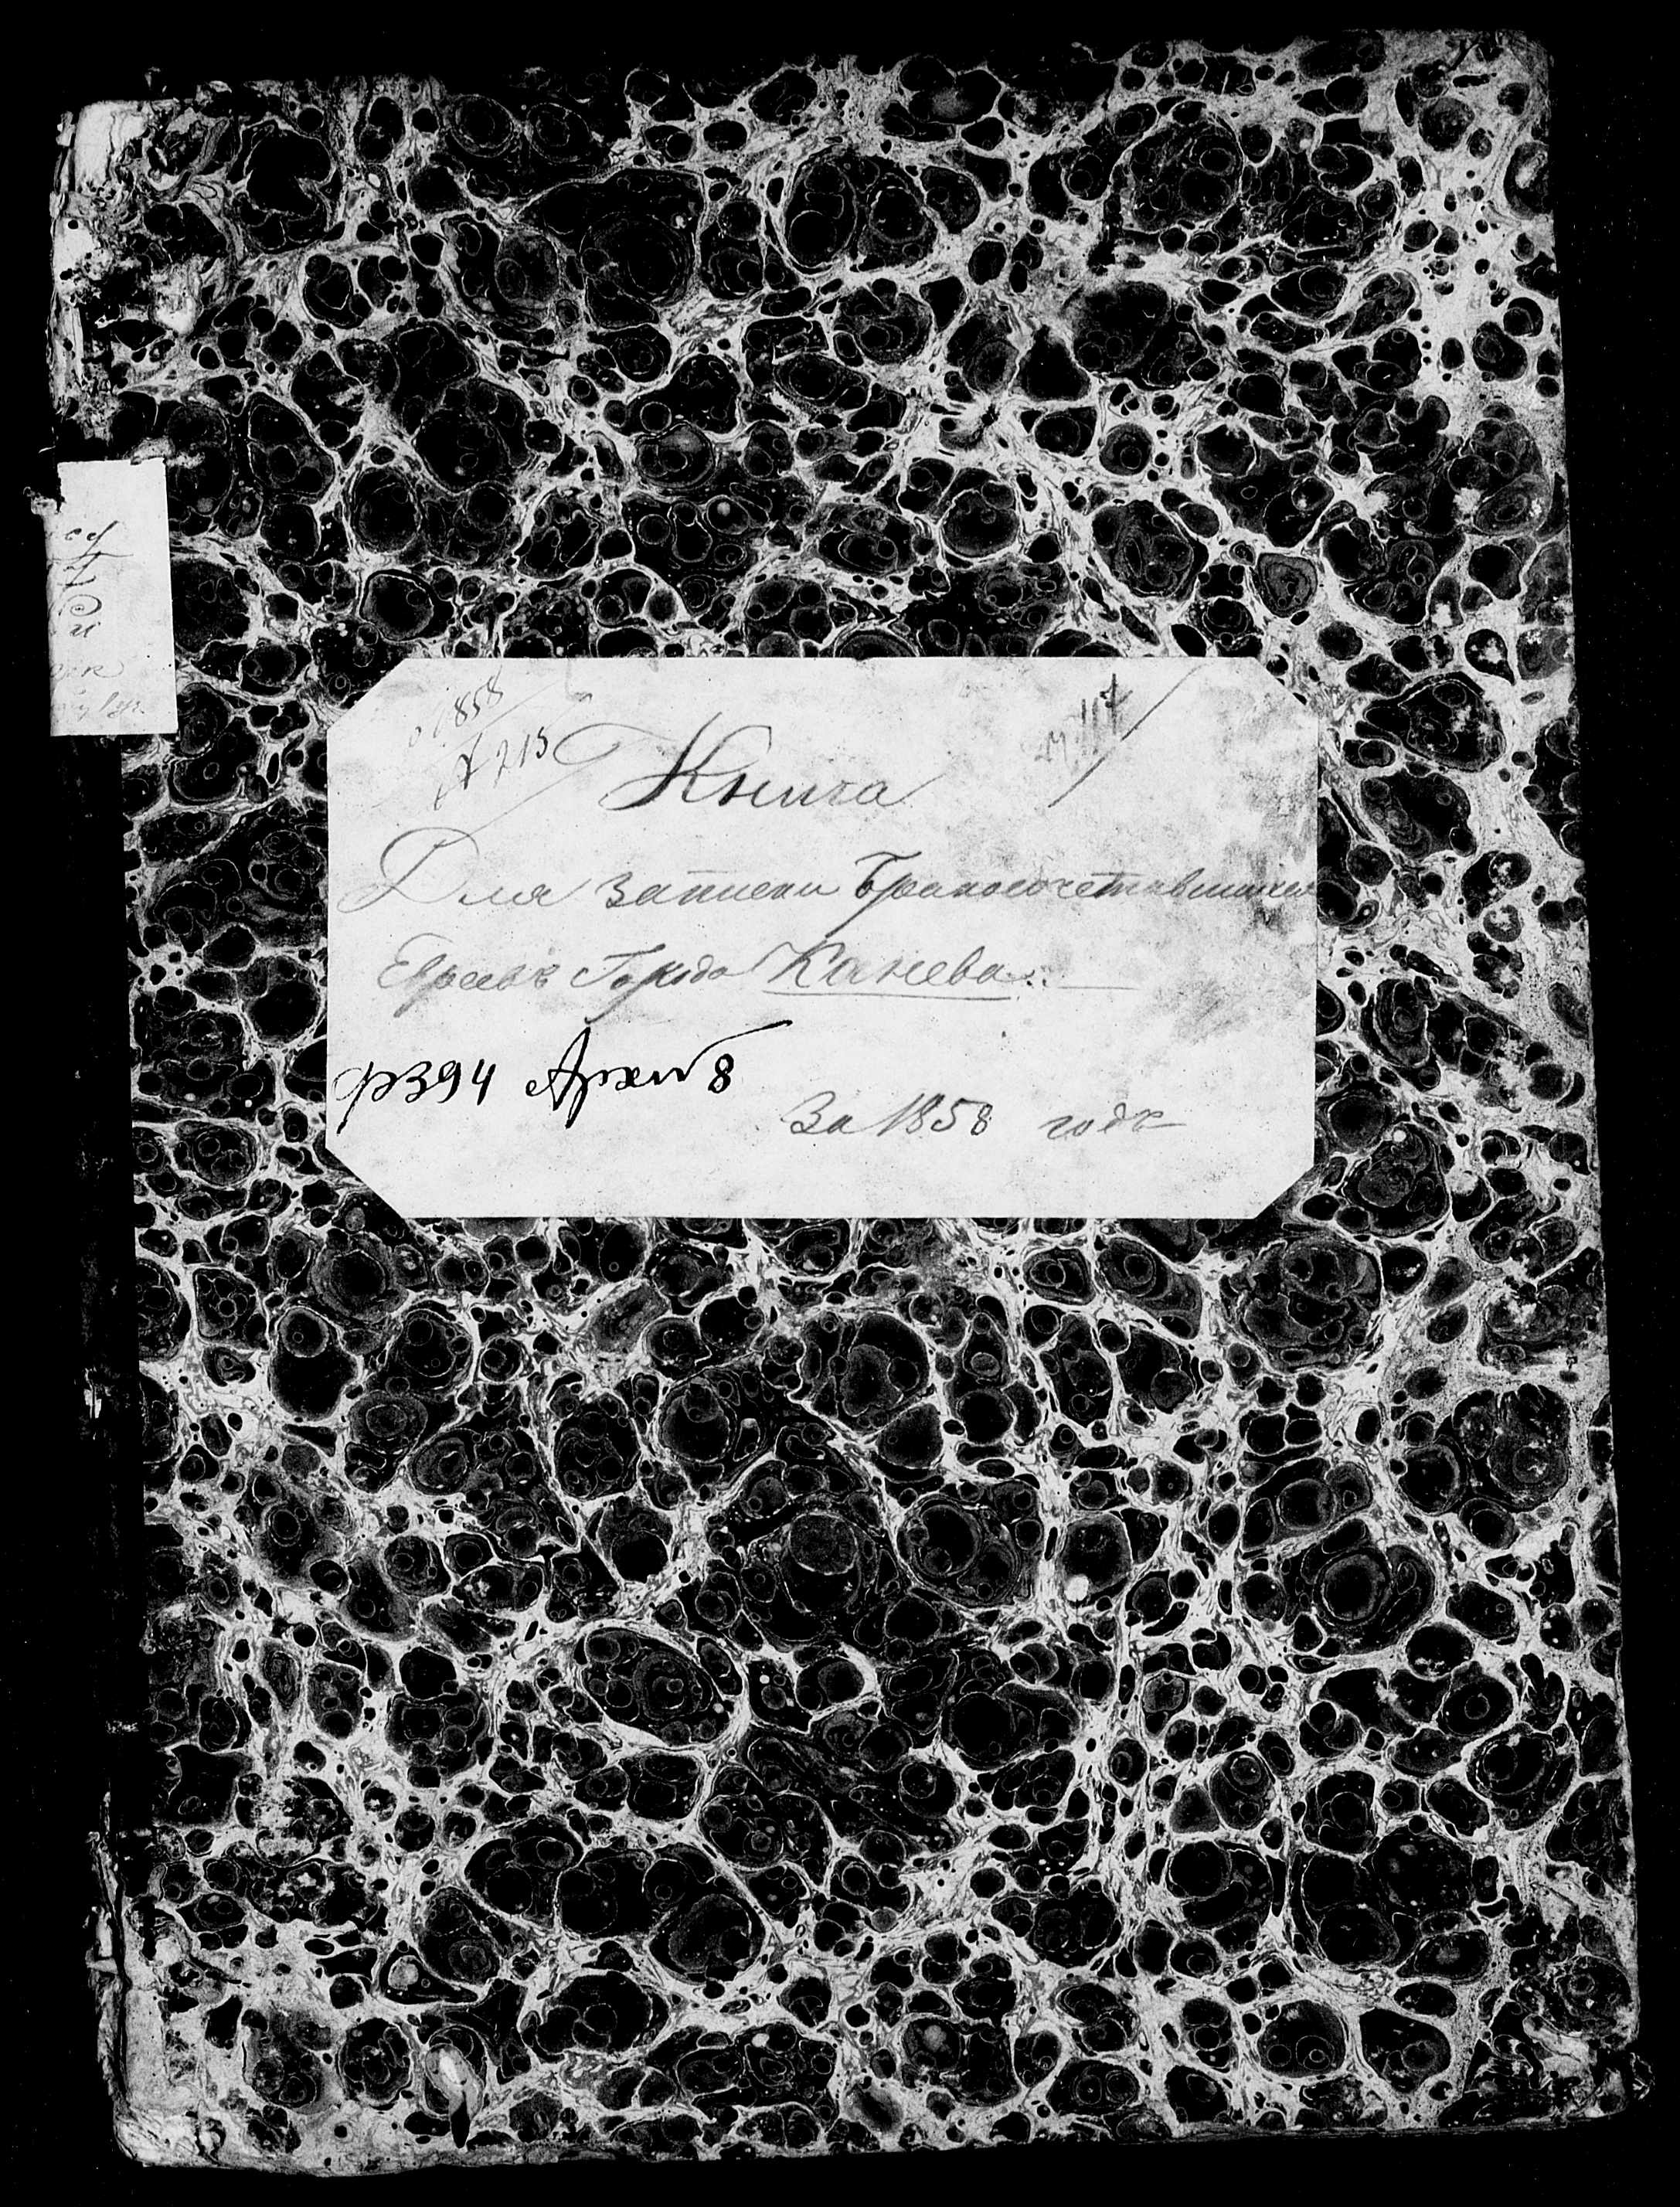 1858
№ 215
117
Книга
Для записки Бракосочетавшихся
Евреевъ Города Канева
ф 394 Архив 8
За 1858 годъ